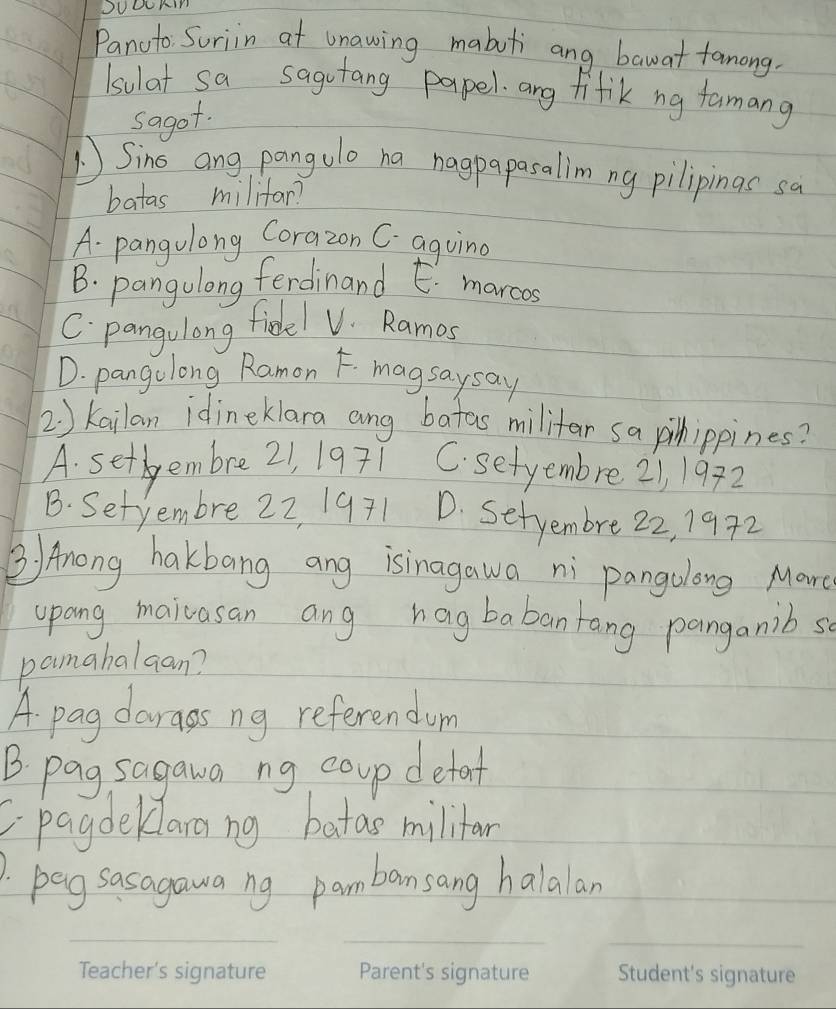 Subukin
Panuto: Suriin at unawing mabuti ang bawat tanong.
Isulat sa sagutang papel. ang titik ng tamang
sagot.
1.) Sino ang pangulo na nagpapasalim ng pilipinas sa
batas militar?
A. pangulong Corazon C. aquino
B. pangulong ferdinand E. marcos
C. pangulong fidel V. Ramos
D. pangulong Ramon F. magsaysay
2.) Kailan idineklara ang batas militar sa philippines?
A. setyembre 21, 1971 C. setyembre 21, 1972
B. Setyembre 22, 1971 D. Setyembre 22, 1972
3.) Anong hakbang ang isinagawa ni pangulong Marc
upang maiuasan ang nagbabantang panganib sa
pamahalaan?
A. pag daraos ng referendum
B. pag sagawa ng coup detat
C. pagdeklara ng batas militar
D. pag sasagawa ng pambansang halalan
Teacher's signature Parent's signature Student's signature